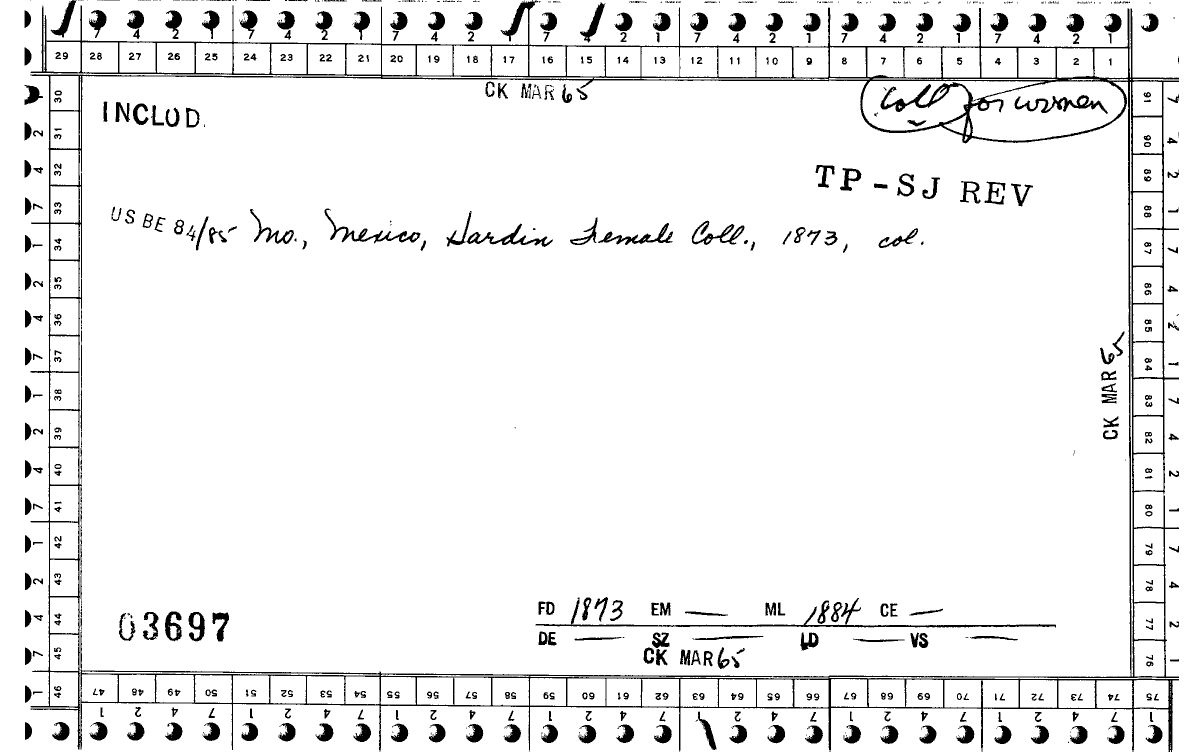 7 4 2 1 7 4 2 1 7 4 2 1 7 4 2 1 7 4 2 1 7 4 2 1 7 4 2 1
29 28 27 26 25 24 23 22 21 20 19 18 17 16 15 14 13 12 11 10 9 8 7 6 5 4 3 2 1
CK MAR 65
Coll for women
INCLUD.
TP-SJ REV
US BE 84/85 Mo., Mexico, Hardin Female Coll., 1873, col.
CK MAR 65
03697
FD 1873 EM — ML 1884 CE —
DE — SZ — LD — VS —
CK MAR 65
1 30
2 31
4 32
7 33
1 34
2 35
4 36
7 37
1 38
2 39
4 40
7 41
1 42
2 43
4 44
7 45
1 46
91 7
90 4
89 2
88 1
87 7
86 4
85 2
84 1
83 7
82 4
81 2
80 1
79 7
78 4
77 2
76 1
47 48 49 50 51 52 53 54 55 56 57 58 59 60 61 62 63 64 65 66 67 68 69 70 71 72 73 74 75
1 2 4 7 1 2 4 7 1 2 4 7 1 2 4 7 1 2 4 7 1 2 4 7 1 2 4 7 1